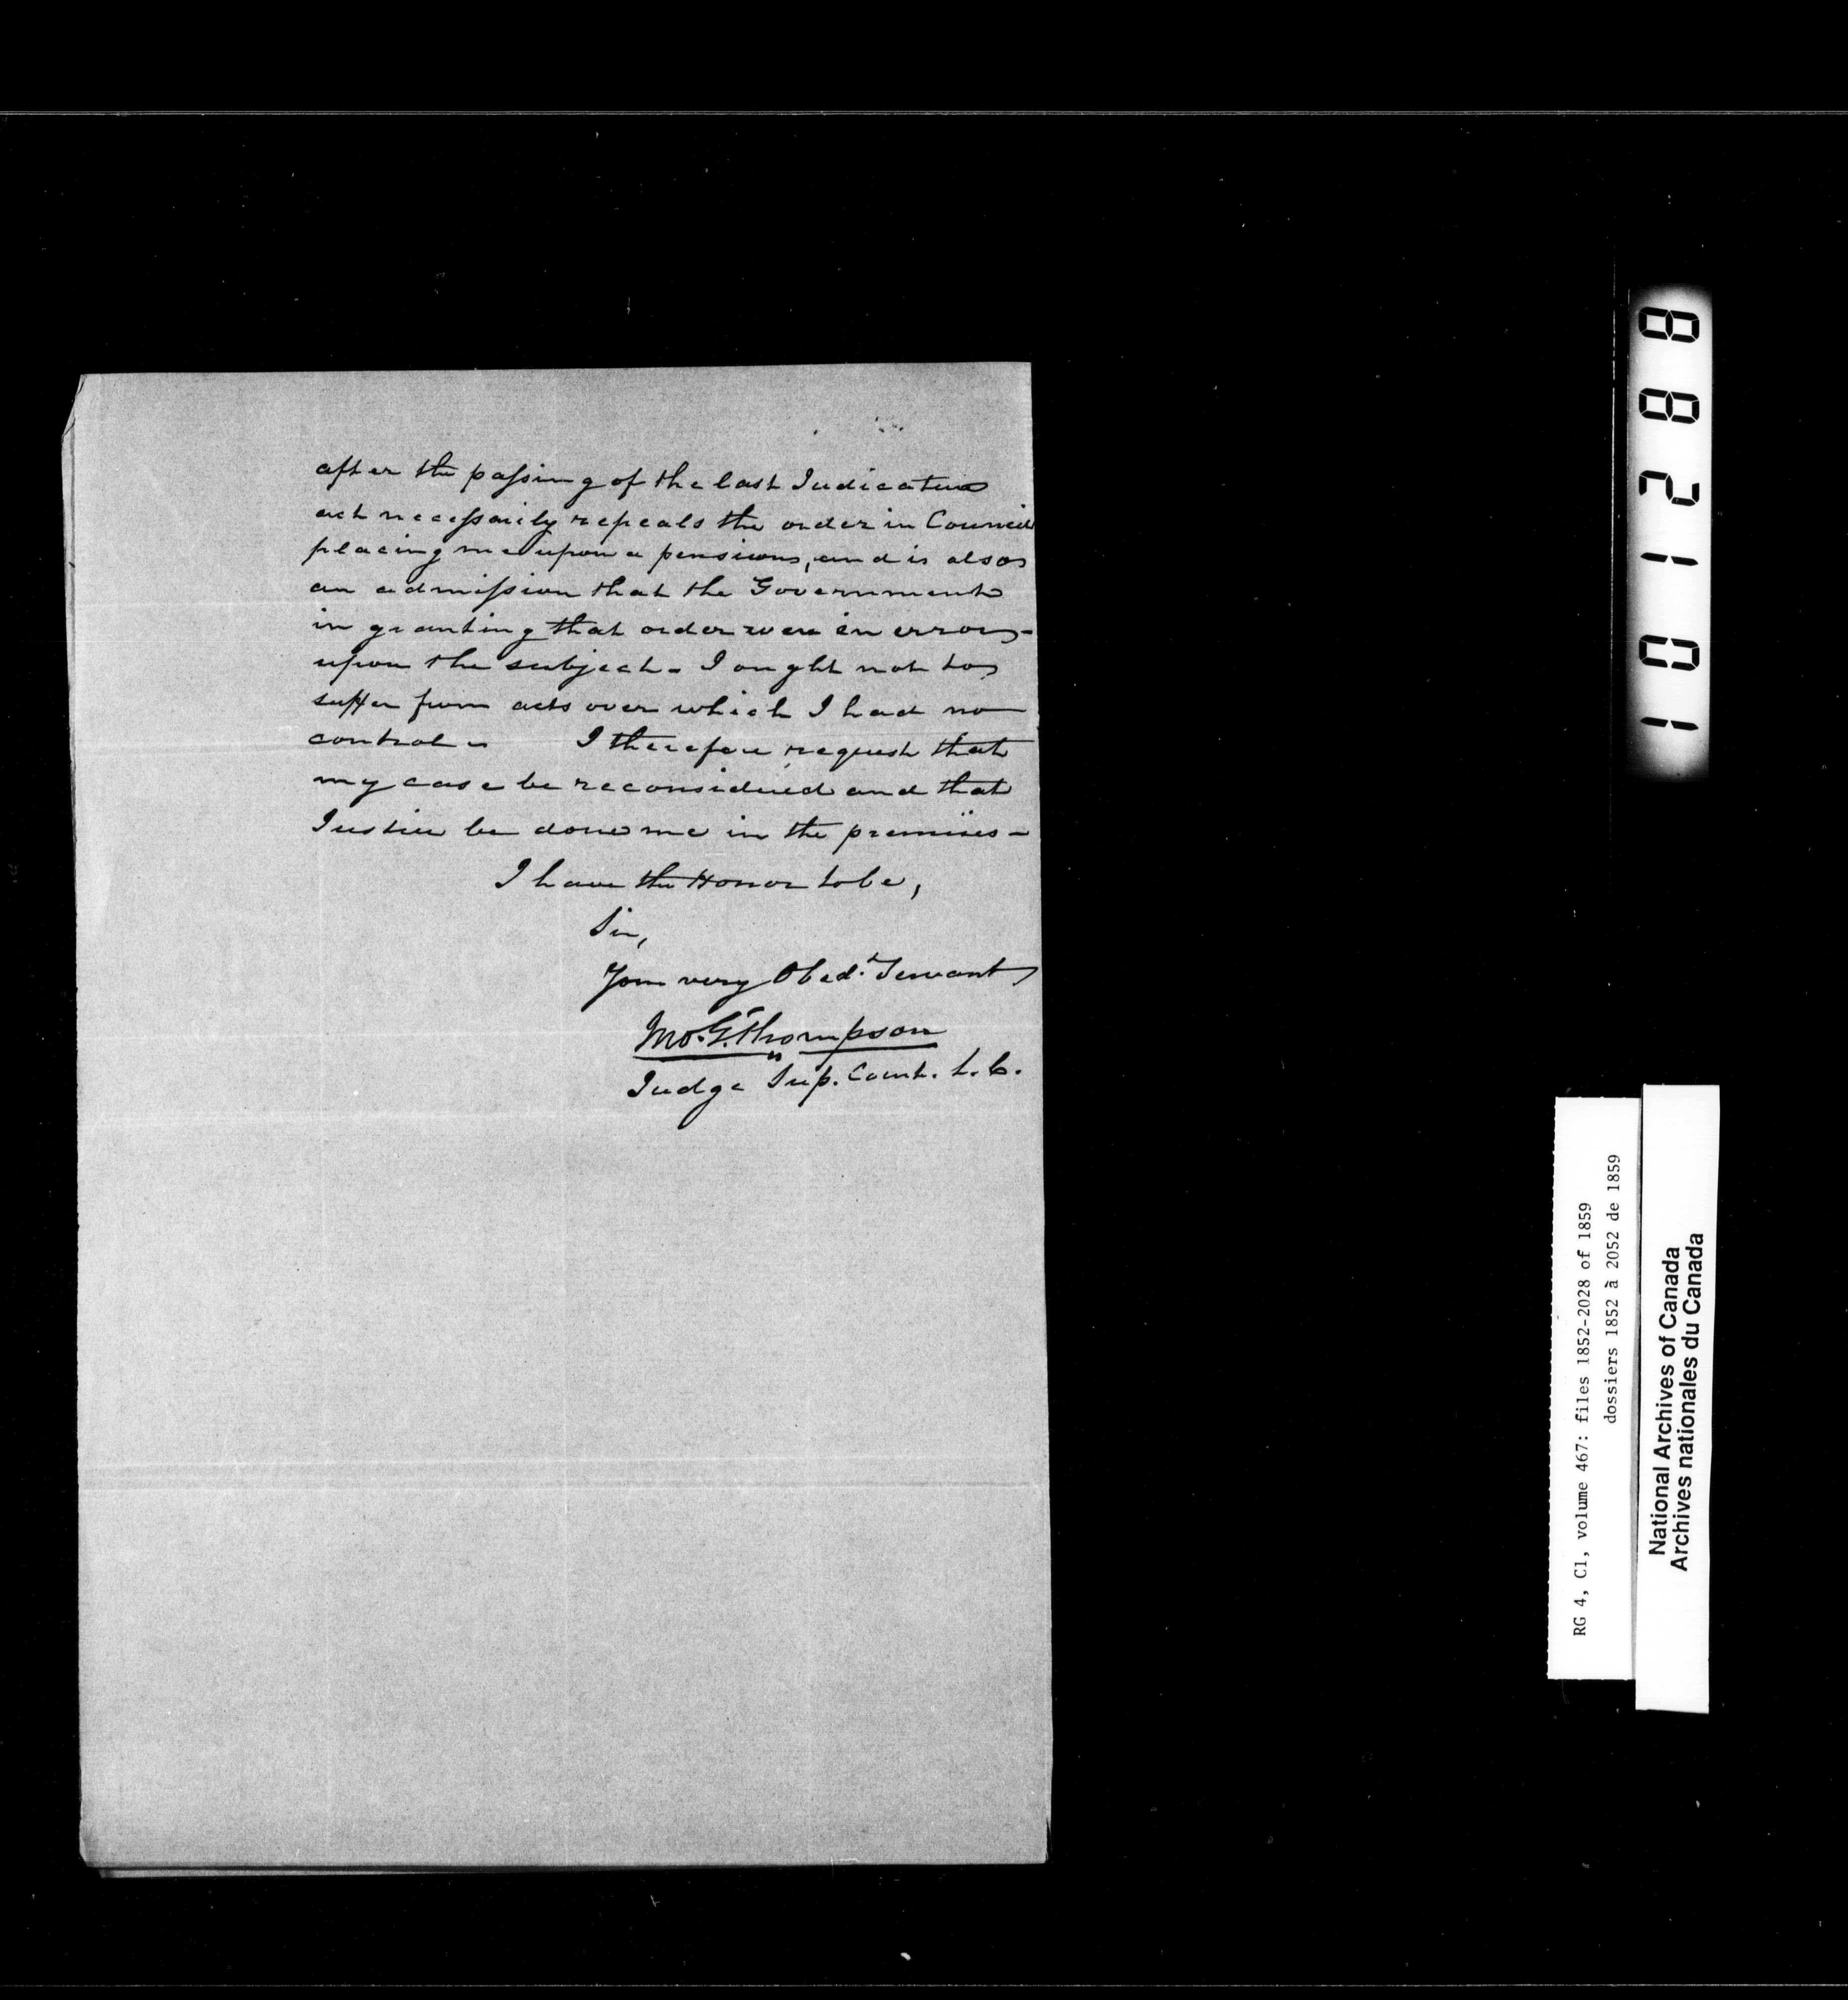 after the passing of the last Judicature
act necessarily repeals the order in Council
placing me upon a pension, and is also
an admission that the Government
in granting that order were in error -
upon the subject - I ought not to
suffer from acts over which I had no
control - I therefore request that
my case be reconsidered and that
Justice be done me in the premises -
I have the Honor to be,
Sir,
Your very Obedt. Servant
Jno. G. Thompson
Judge Sup. Court. L. C.
101288
RG 4, C1, volume 467: files 1852-2028 of 1859
dossiers 1852 à 2052 de 1859
National Archives of Canada
Archives nationales du Canada